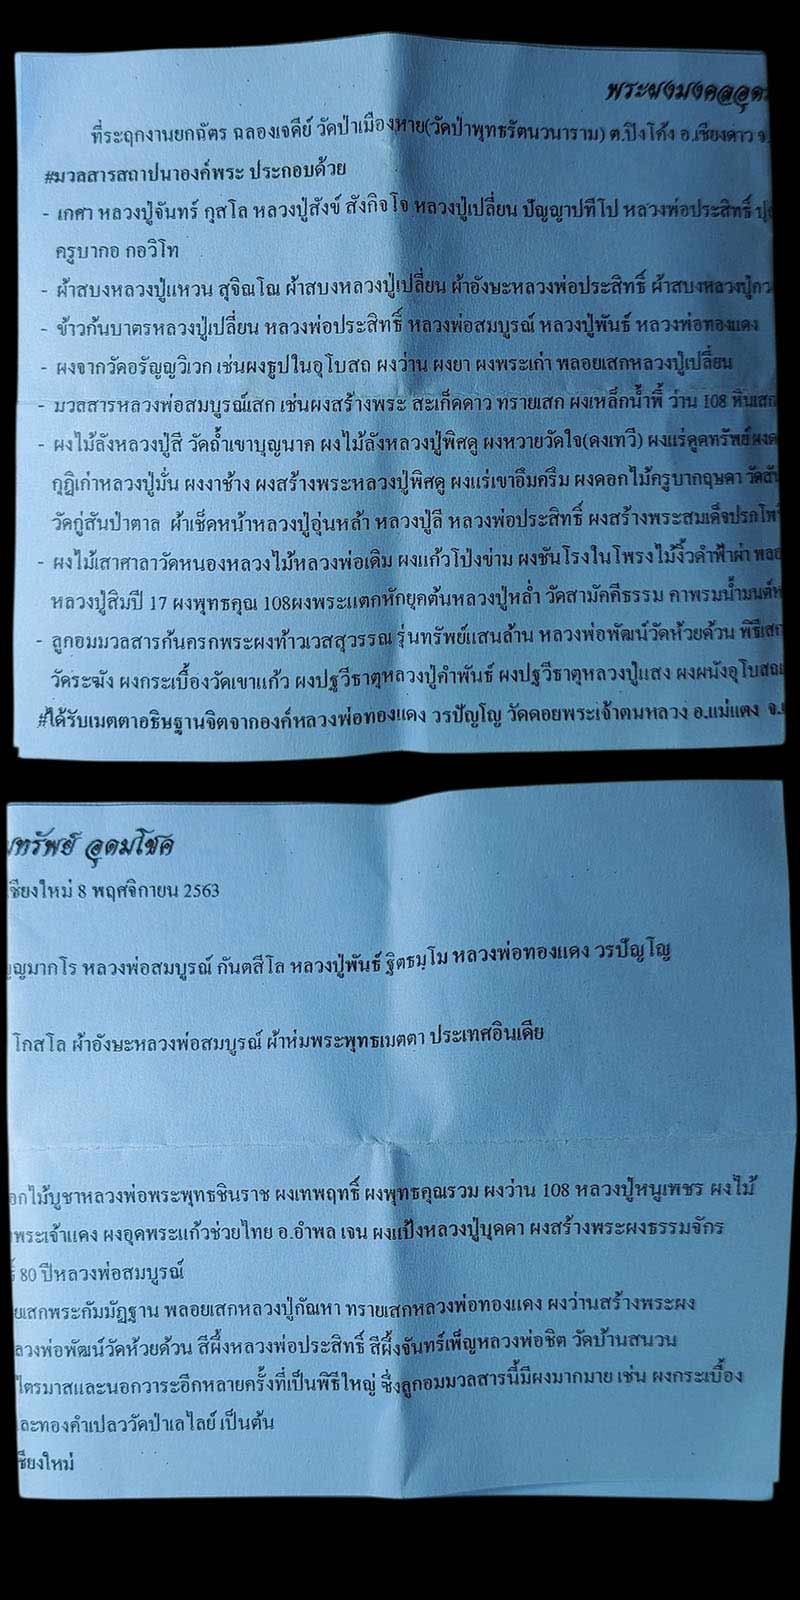 พระผงมงคลอุดม
ที่ระฤกงานยกฉัตร ฉลองเจดีย์ วัดป่าเมืองหาย(วัดป่าพุทธรัตนวนาราม) ต.ปิงโค้ง อ.เชียงดาว จ.
#มวลสารสถาปนาองค์พระ ประกอบด้วย
- เกศา หลวงปู่จันทร์ กุสโล หลวงปู่สังข์ สังกิจโจ หลวงปู่เปลี่ยน ปัญญาปทีโป หลวงพ่อประสิทธิ์
ครูบากอ กอวิโท
- ผ้าสบงหลวงปู่แหวน สุจิณโณ ผ้าสบงหลวงปู่เปลี่ยน ผ้าอังษะหลวงพ่อประสิทธิ์ ผ้าสบงหลวงปู่
- ข้าวก้นบาตรหลวงปู่เปลี่ยน หลวงพ่อประสิทธิ์ หลวงพ่อสมบูรณ์ หลวงปู่พันธ์ หลวงพ่อทองแดง
- ผงจากวัดอรัญญวิเวก เช่นผงธูปในอุโบสถ ผงว่าน ผงยา ผงพระเก่า พลอยเสกหลวงปู่เปลี่ยน
- มวลสารหลวงพ่อสมบูรณ์เสก เช่นผงสร้างพระ สะเก็ดดาว ทรายเสก ผงเหล็กน้ำพี้ ว่าน 108 หินเสก
- ผงไม้ลังหลวงปู่สี วัดถ้ำเขาบุญนาค ผงไม้ลังหลวงปู่พิศดู ผงหวายวัดใจ(ดงเทวี) ผงแร่ดูดทรัพย์ผงด
กุฏิเก่าหลวงปู่มั่น ผงงาช้าง ผงสร้างพระหลวงปู่พิศดู ผงแร่เขาอึมครึม ผงดอกไม้ครูบากฤษดา วัดสัน
วัดกู่สันป่าตาล ผ้าเช็ดหน้าหลวงปู่อุ่นหล้า หลวงปู่ลี หลวงพ่อประสิทธิ์ ผงสร้างพระสมเด็จปรกโพธิ์
- ผงไม้เสาศาลาวัดหนองหลวงไม้หลวงพ่อเดิม ผงแก้วโป่งข่าม ผงชันโรงในโพรงไม้งิ้วดำฟ้าผ่า พลอ
หลวงปู่สิมปี 17 ผงพุทธคุณ 108ผงพระแตกหักยุคต้นหลวงปู่หล่ำ วัดสามัคคีธรรม คาพรมน้ำมนต์ห
- ลูกอมมวลสารก้นครกพระผงท้าวเวสสุวรรณ รุ่นทรัพย์แสนล้าน หลวงพ่อพัฒน์วัดห้วยด้วน พิธีเสก
วัดระฆัง ผงกระเบื้องวัดเขาแก้ว ผงปฐวีธาตุหลวงปู่คำพันธ์ ผงปฐวีธาตุหลวงปู่แสง ผงผนังอุโบสถแ
#ได้รับเมตตาอธิษฐานจิตจากองค์หลวงพ่อทองแดง วรปัญโญ วัดดอยพระเจ้าตนหลวง อ.แม่แตง จ.
มทรัพย์ อุดมโชค
เชียงใหม่ 8 พฤศจิกายน 2563
ญมากโร หลวงพ่อสมบูรณ์ กันตสีโล หลวงปู่พันธ์ ฐิตธมฺโม หลวงพ่อทองแดง วรปัญโญ
โกสโล ผ้าอังษะหลวงพ่อสมบูรณ์ ผ้าห่มพระพุทธเมตตา ประเทศอินเดีย
อกไม้บูชาหลวงพ่อพระพุทธชินราช ผงเทพฤทธิ์ ผงพุทธคุณรวม ผงว่าน 108 หลวงปู่หนูเพชร ผงไม้
พระเจ้าแดง ผงอุดพระแก้วช่วยไทย อ.อำพล เจน ผงแป้งหลวงปู่บุดดา ผงสร้างพระผงธรรมจักร
์ 80 ปีหลวงพ่อสมบูรณ์
ยเสกพระกัมมัฏฐาน พลอยเสกหลวงปู่กัณหา ทรายเสกหลวงพ่อทองแดง ผงว่านสร้างพระผง
ลวงพ่อพัฒน์วัดห้วยด้วน สีผึ้งหลวงพ่อประสิทธิ์ สีผึ้งจันทร์เพ็ญหลวงพ่อชิต วัดบ้านสนวน
ไตรมาสและนอกวาระอีกหลายครั้งที่เป็นพิธีใหญ่ ซึ่งลูกอมมวลสารนี้มีผงมากมาย เช่น ผงกระเบื้อง
ละทองคำเปลววัดป่าเลไลย์ เป็นต้น
ชียงใหม่